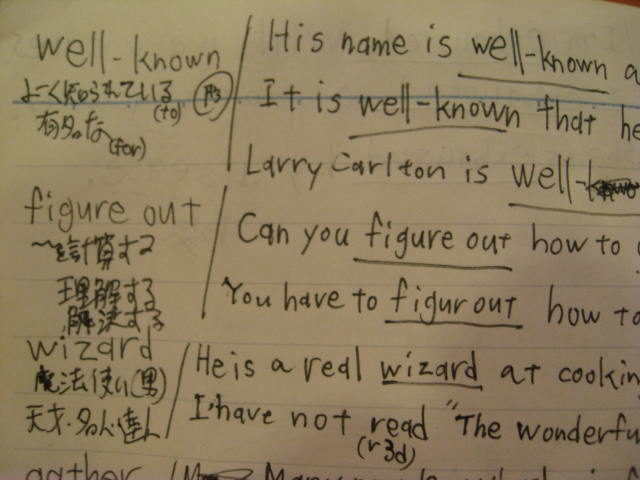 well-known
よーく知られている 形
(to)
有名な
(for)
His name is well-known a
It is well-known that he
Larry Carlton is well-
figure out
〜を計算する
理解する
解決する
Can you figure out how to
You have to figur out how to
wizard
魔法使い(男)
天才・名人・達人
He is a real wizard at cookin
I'have not read "The wonderfu
(r3d)
gather